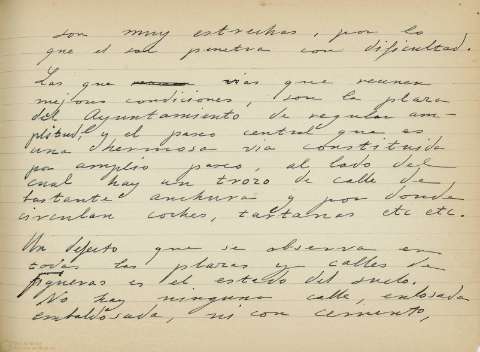 son muy estrechas, por lo
que el sol penetra con dificultad.
Las que vias que reunen
mejores condiciones, son la plaza
del Ayuntamiento de regular am-
plitud, y el paseo central que es
una hermosa via constituida
por amplio paseo, al lado del
cual hay un trozo de calle de
bastante anchura y por donde
circulan coches, tartanas etc etc.
Un defecto que se observa en
todas las plazas y calles de
Figueras es el estado del suelo.
No hay ninguna calle, enlosada
embaldosada, ni con cemento,